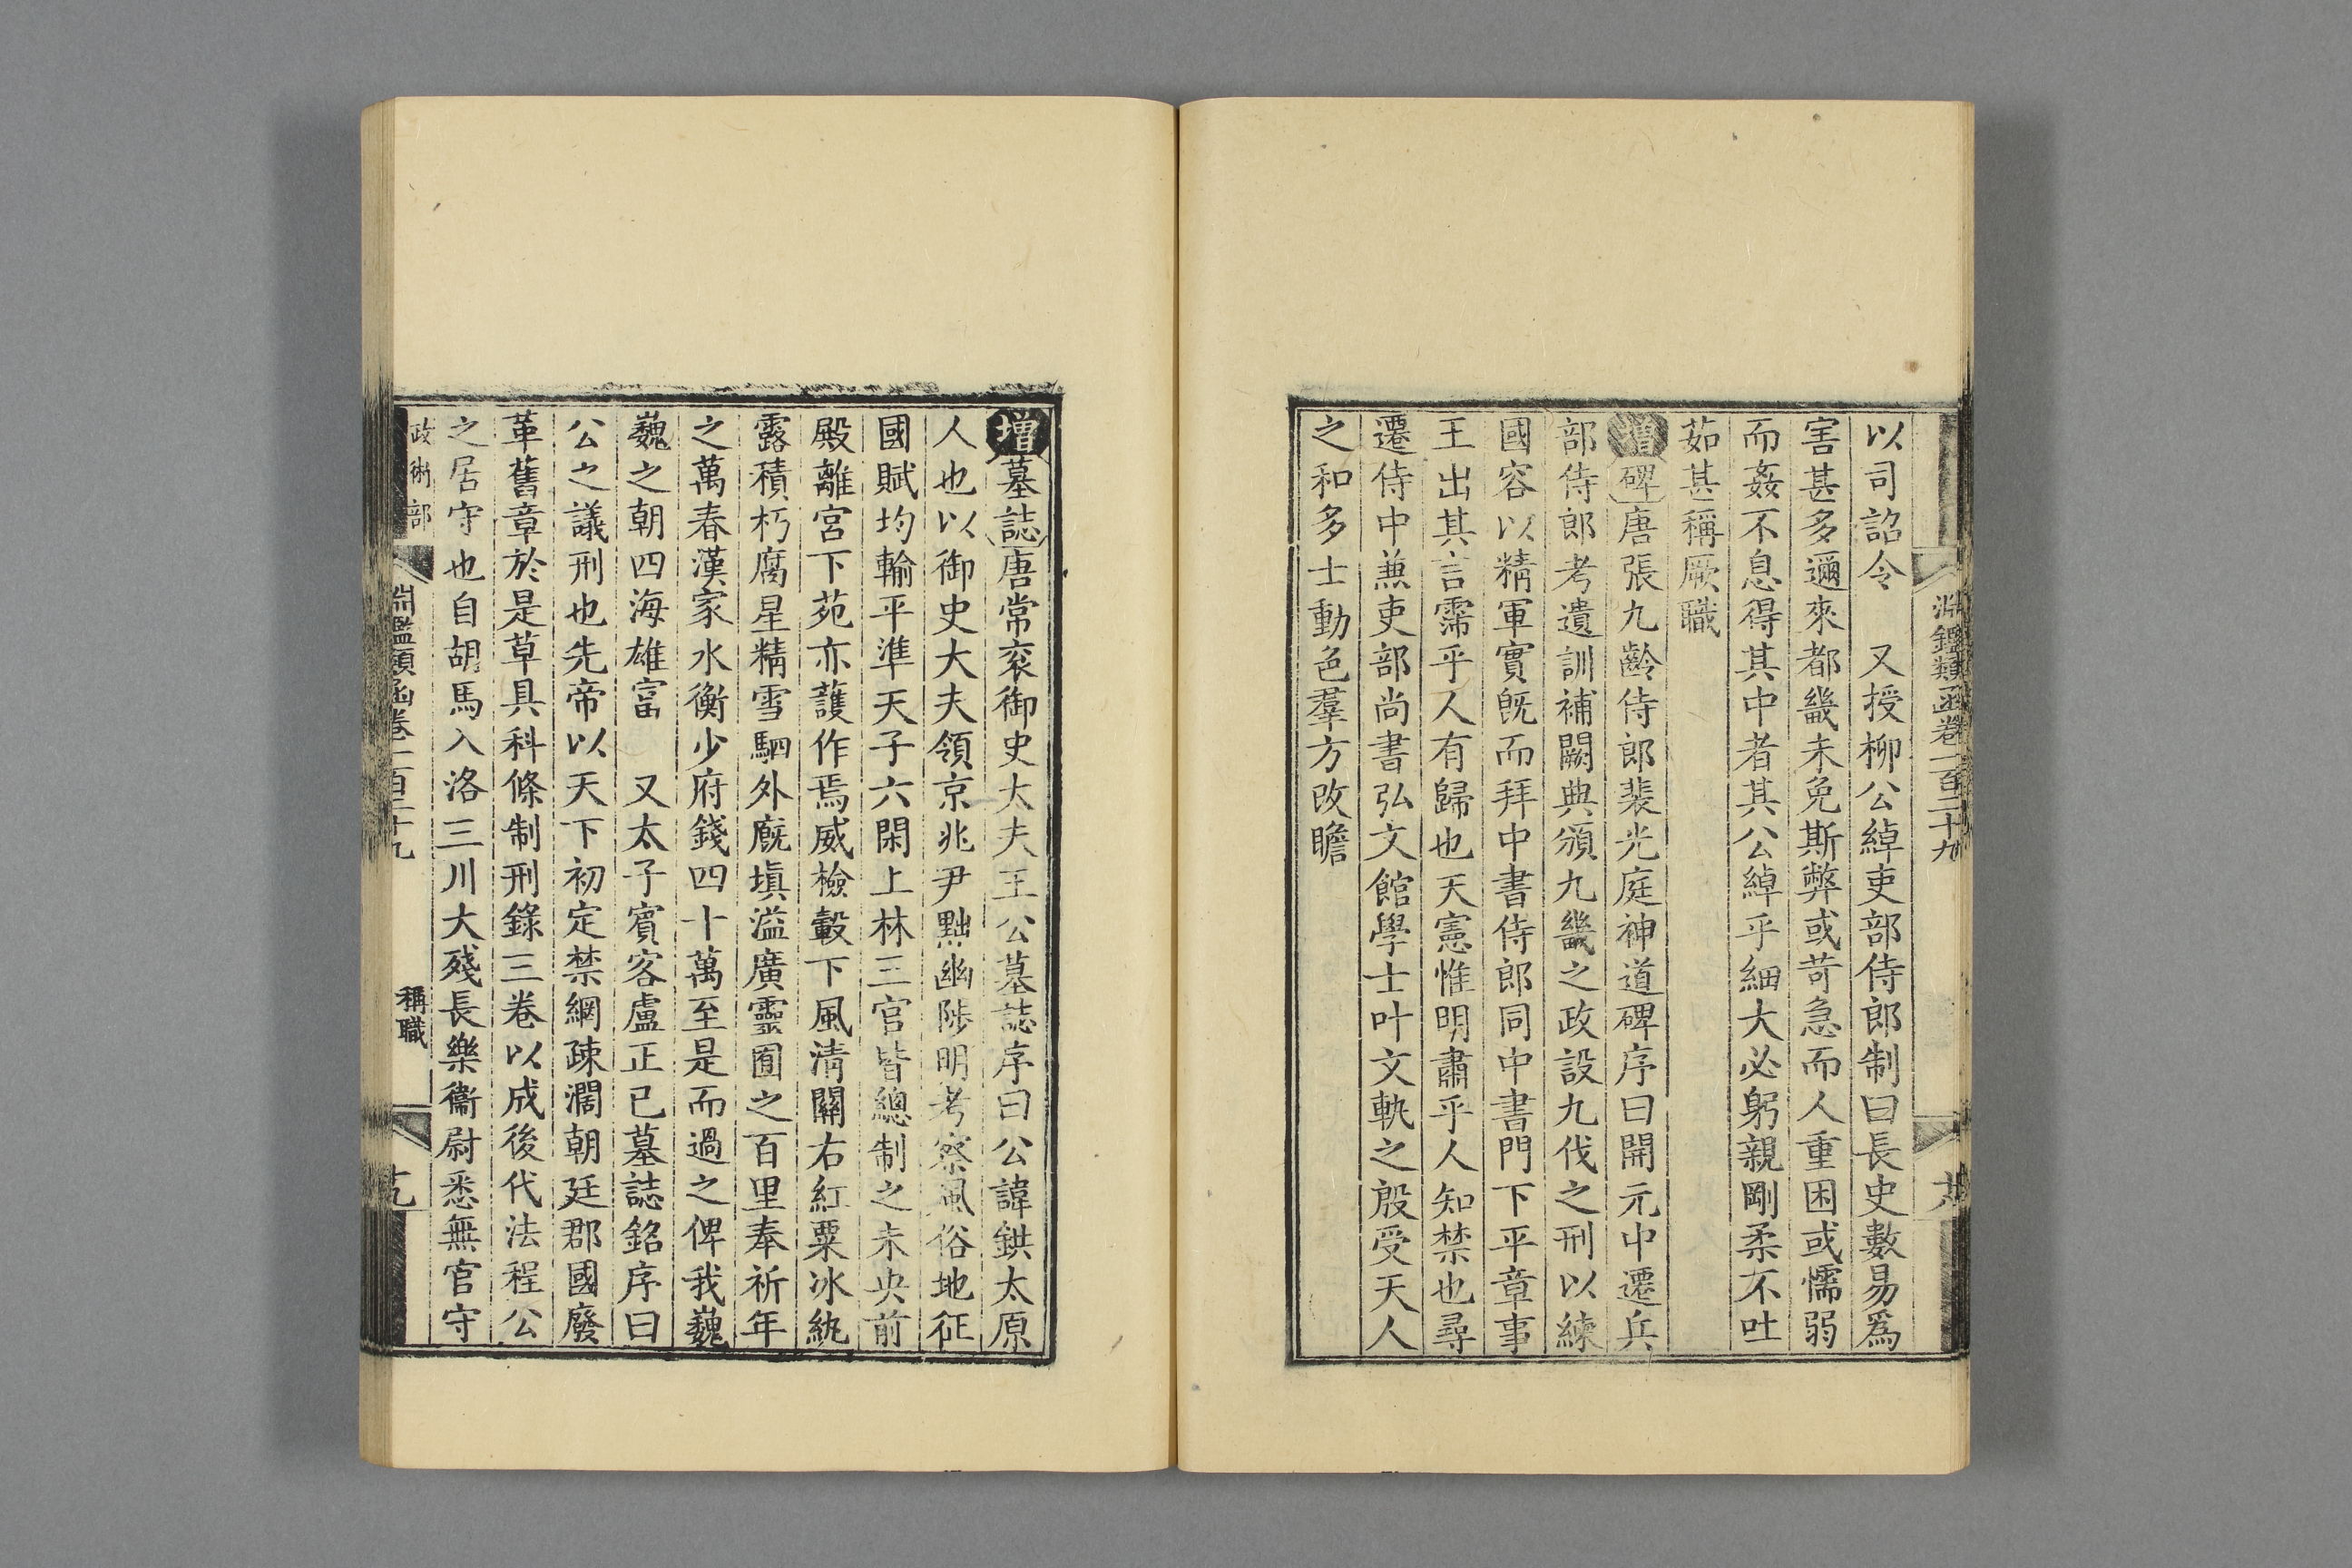 淵鑑類函卷一百二十九
以司詔令　又授柳公綽吏部侍郎制曰長史數易爲
害甚多邇來都畿未免斯弊或苛急而人重困或懦弱
而姦不息得其中者其公綽乎細大必躬親剛柔不吐
茹甚稱厥職
增碑唐張九齡侍郎裴光庭神道碑序曰開元中遷兵
部侍郎考遺訓補闕典頒九畿之政設九伐之刑以練
國容以精軍實旣而拜中書侍郎同中書門下平章事
王出其言霈乎人有歸也天憲惟明肅乎人知禁也尋
遷侍中兼吏部尚書弘文館學士叶文軌之殷受天人
之和多士動色羣方改瞻
增墓誌唐常衮御史大夫王公墓誌序曰公諱鉷太原
人也以御史大夫領京兆尹黜幽陟明考察風俗地征
國賦均輸平準天子六閑上林三官皆總制之未央前
殿離宮下苑亦護作焉威檢轂下風淸關右紅粟冰紈
露積朽腐星精雪駟外廐塡溢廣靈囿之百里奉祈年
之萬春漢家水衡少府錢四十萬至是而過之俾我巍
巍之朝四海雄富　又太子賓客盧正已墓誌銘序曰
公之議刑也先帝以天下初定禁網疎濶朝廷郡國廢
革舊章於是草具科條制刑錄三卷以成後代法程公
之居守也自胡馬入洛三川大殘長樂衞尉悉無官守
政術部　淵鑑類函卷一百二十九　稱職　十九